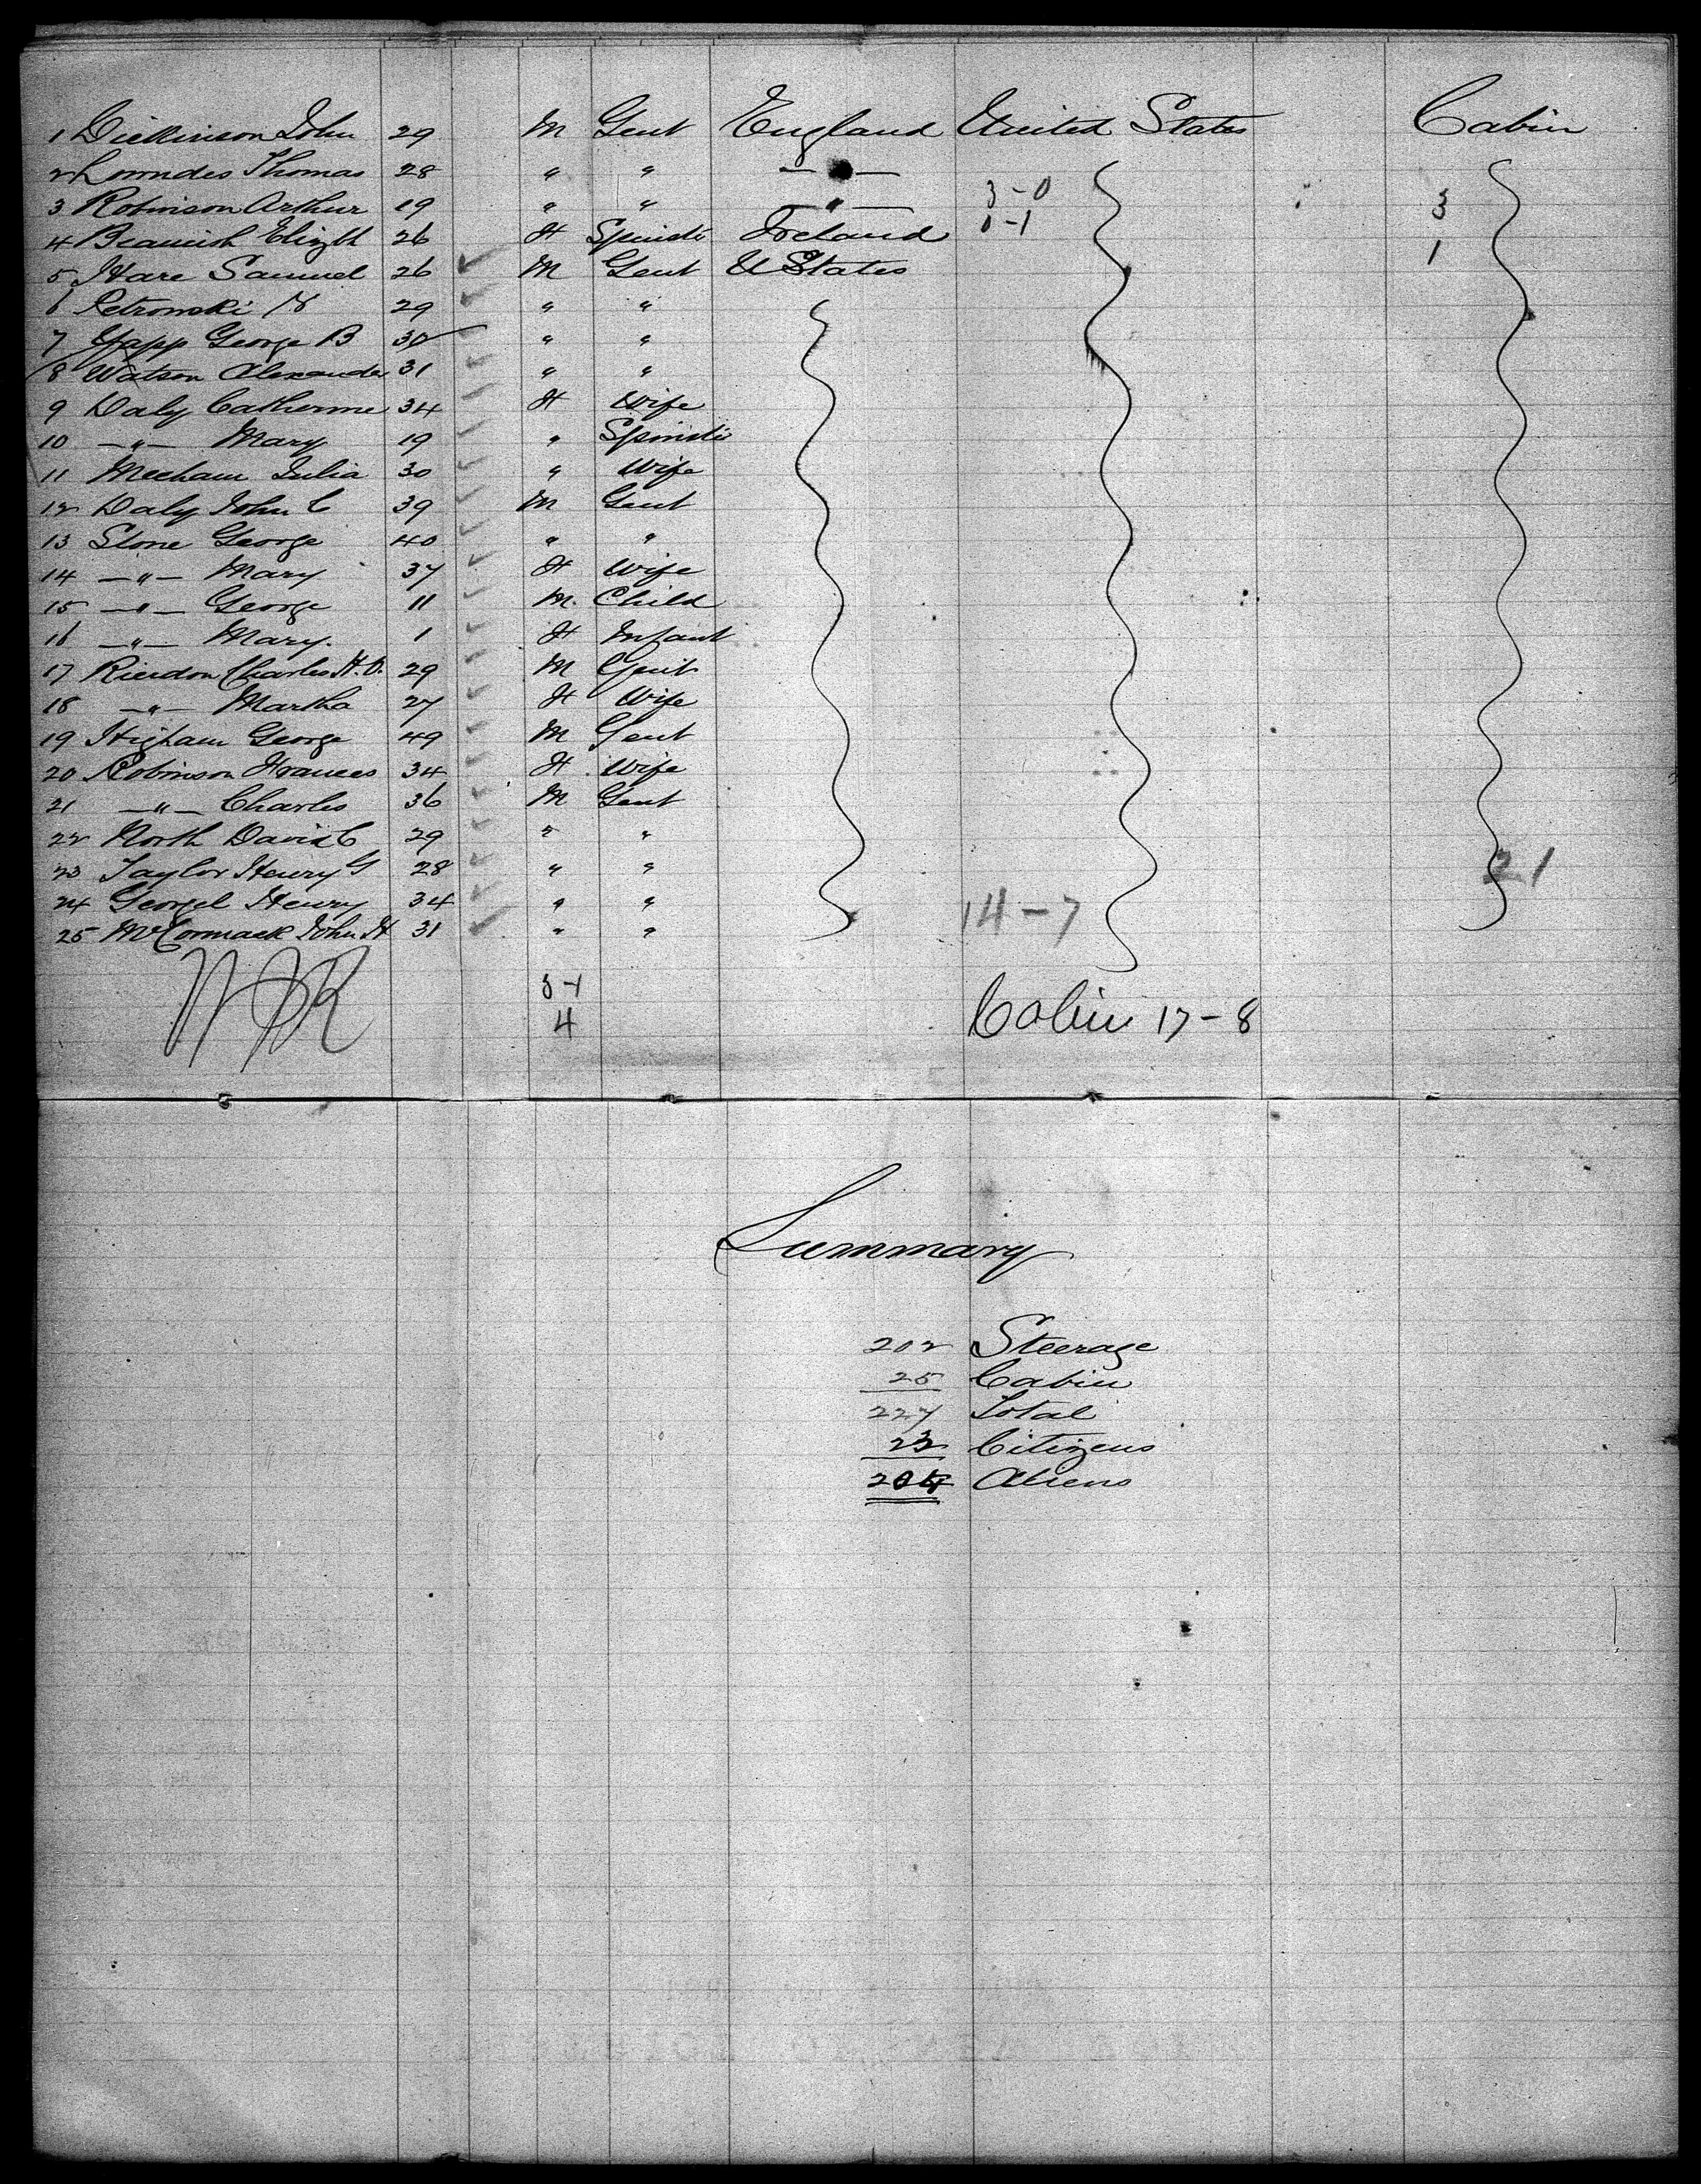 1 Dickinson John 29 M Gent England United States Cabin
2 Lowndes Thomas 28 " " — " —
3 Robinson Arthur 19 " " — " — 3-0 3
4 Beamish Elizbth 26 F Spinstr Ireland 0-1 1
5 Hare Samuel 26 M Gent U States
6 Petrowski 29 " "
7 George B 30 " "
8 Watson Alexander 31 " "
9 Daly Catherine 34 F Wife
10 — " — Mary 19 " Spinstr
11 Mecham Julia 30 " Wife
12 Daly John C 39 M Gent
13 Stone George 40 " "
14 — " — Mary 37 F Wife
15 — " — George 11 M. Child
16 — " — Mary. 1 F Infant
17 Riendon Charles H.D. 29 M Gent
18 — " — Martha 27 F Wife
19 Higham George 49 M Gent
20 Robinson Frances 34 F Wife
21 — " — Charles 36 M Gent
22 North David C 29 " "
23 Taylor Henry G 28 " " 21
24 Henry 34 " " 14-7
25 McCormack John H 31 " "
3-1
4 Cabin 17-8
Summary
202 Steerage
25 Cabin
227 Total
23 Citizens
204 Aliens